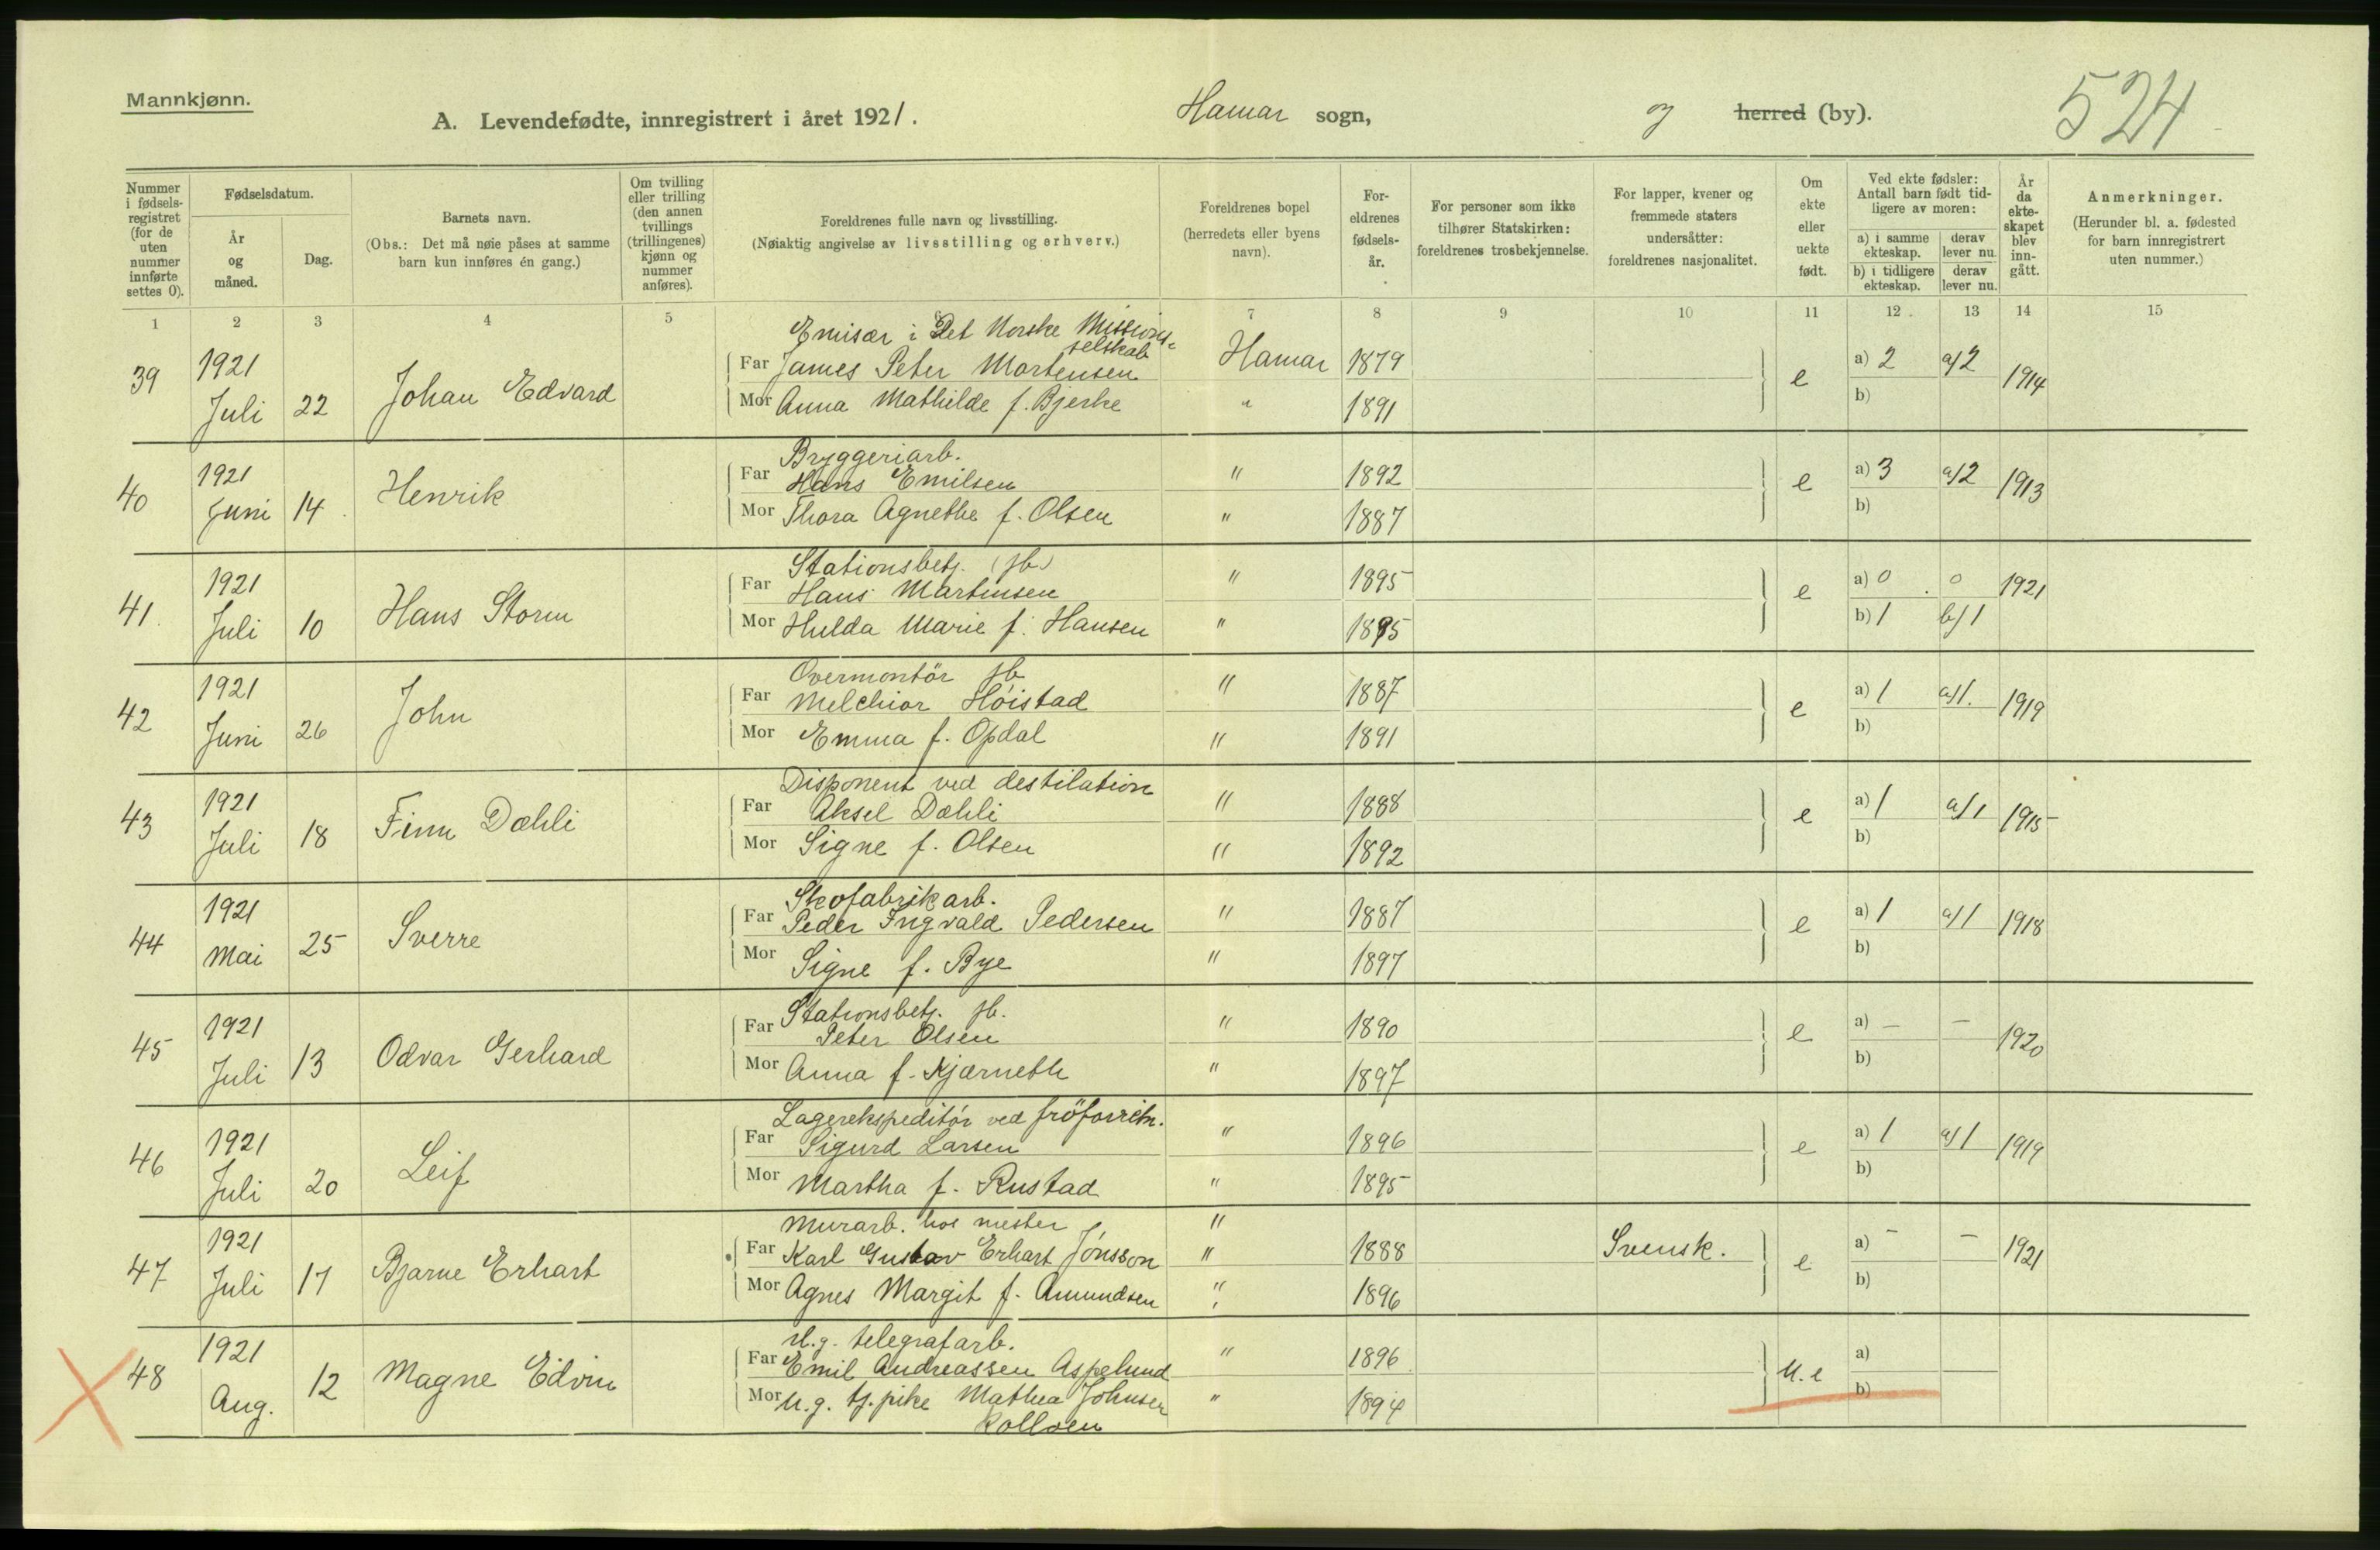 Mannkjønn.
A. Levendefødte, innregistrert i året 1921. Hamar sogn, og herred (by). 524
Nummer i fødsels-registret (for de uten nummer innførte settes 0).
Fødselsdatum.
År og måned.
Dag.
Barnets navn.
(Obs.: Det må nøie påses at samme barn kun innføres én gang.)
Om tvilling eller trilling (den annen tvillings (trillingenes) kjønn og nummer anføres).
Foreldrenes fulle navn og livsstilling.
(Nøiaktig angivelse av livsstilling og erhverv.)
Foreldrenes bopel (herredets eller byens navn).
For-eldrenes fødsels-år.
For personer som ikke tilhører Statskirken: foreldrenes trosbekjennelse.
For lapper, kvener og fremmede staters undersåtter: foreldrenes nasjonalitet.
Om ekte eller uekte født.
Ved ekte fødsler: Antall barn født tid-ligere av moren:
a) i samme ekteskap. derav lever nu.
b) i tidligere ekteskap. derav lever nu.
År da ekte-skapet blev inn-gått.
Anmerkninger.
(Herunder bl. a. fødested for barn innregistrert uten nummer.)
1 2 3 4 5 6 7 8 9 10 11 12 13 14 15
Emisær i Det Norske Missions-
selskab
39 1921 Juli 22 Johan Edvard
Far James Peter Mortensen Hamar 1879 e a) 2 a/2 1914
Mor Anna Mathilde f. Bjerke " 1891 b)
Bryggeriarb.
40 1921 Juni 14 Henrik
Far Hans Emilsen " 1892 e a) 3 a/2 1913
Mor Thora Agnethe f. Olsen " 1887 b)
Stationsbetj. (jb.)
41. 1921 Juli 10 Hans Storm
Far Hans Martinsen " 1895 e a) 0 0 1921
Mor Hulda Marie f. Hansen " 1895 b) 1 b/1
Overmontör jb
42 1921 Juni 26 John
Far Melchior Höistad " 1887 e a) 1 a/1. 1919
Mor Emma f. Opdal " 1891 b)
Disponent ved destilation
43 1921 Juli 18 Finn Dæhli
Far Aksel Dæhli " 1888 e a) 1 a/1 1915
Mor Signe f. Olsen " 1892 b)
Skofabrikarb.
44 1921 Mai 25 Sverre
Far Peder Ingvald Pedersen " 1887 e a) 1 a/1 1918
Mor Signe f. Bye " 1897 b)
Stationsbetj. jb.
45 1921 Juli 13 Odvar Gerhard
Far Peter Olsen " 1890 e a) — — 1920
Mor Anna f. Kjærneth " 1897 b)
Lagerekspeditör ved fröforretn.
46 1921 Juli 20 Leif
Far Sigurd Larsen " 1896 e a) 1 a/1 1919
Mor Martha f. Rustad " 1895 b)
Murarb. hos mester "
47 1921 Juli 17 Bjarne Erhart
Far Karl Gustav Erhart Jönsson " 1888 Svensk. e a) - - 1921
Mor Agnes Margit f. Amundsen " 1896 b)
U.g. telegrafarb.
48 1921 Aug. 12 Magne Edvin
Far Emil Andreassen Aspelund " 1896 U.e a)
Mor U.g. tj.pike Mathea Johnsen " 1894 b)
Kolloen